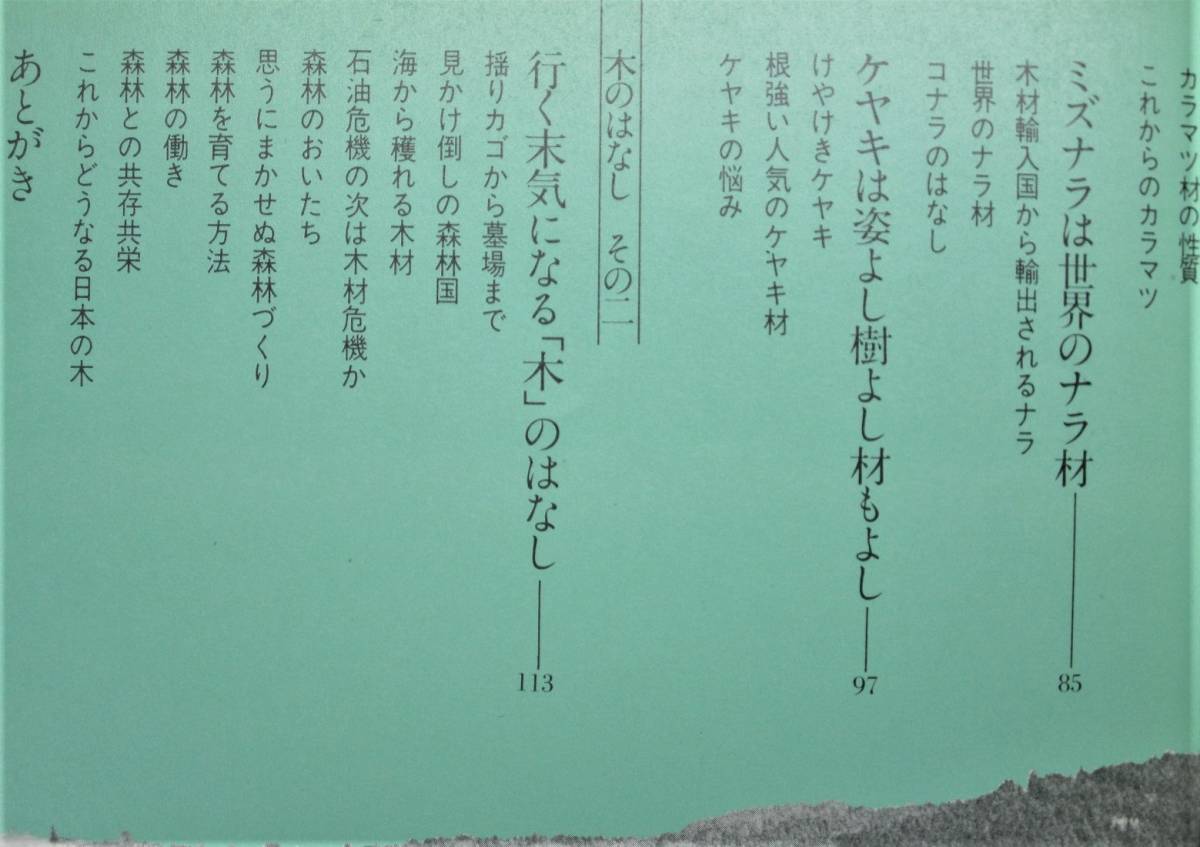 カラマツ材の性質
これからのカラマツ
ミズナラは世界のナラ材——85
木材輸入国から輸出されるナラ
世界のナラ材
コナラのはなし
ケヤキは姿よし樹よし材もよし——97
けやけきケヤキ
根強い人気のケヤキ材
ケヤキの悩み
木のはなし その二
行く末気になる「木」のはなし——113
揺りカゴから墓場まで
見かけ倒しの森林国
海から穫れる木材
石油危機の次は木材危機か
森林のおいたち
思うにまかせぬ森林づくり
森林を育てる方法
森林の働き
森林との共存共栄
これからどうなる日本の木
あとがき